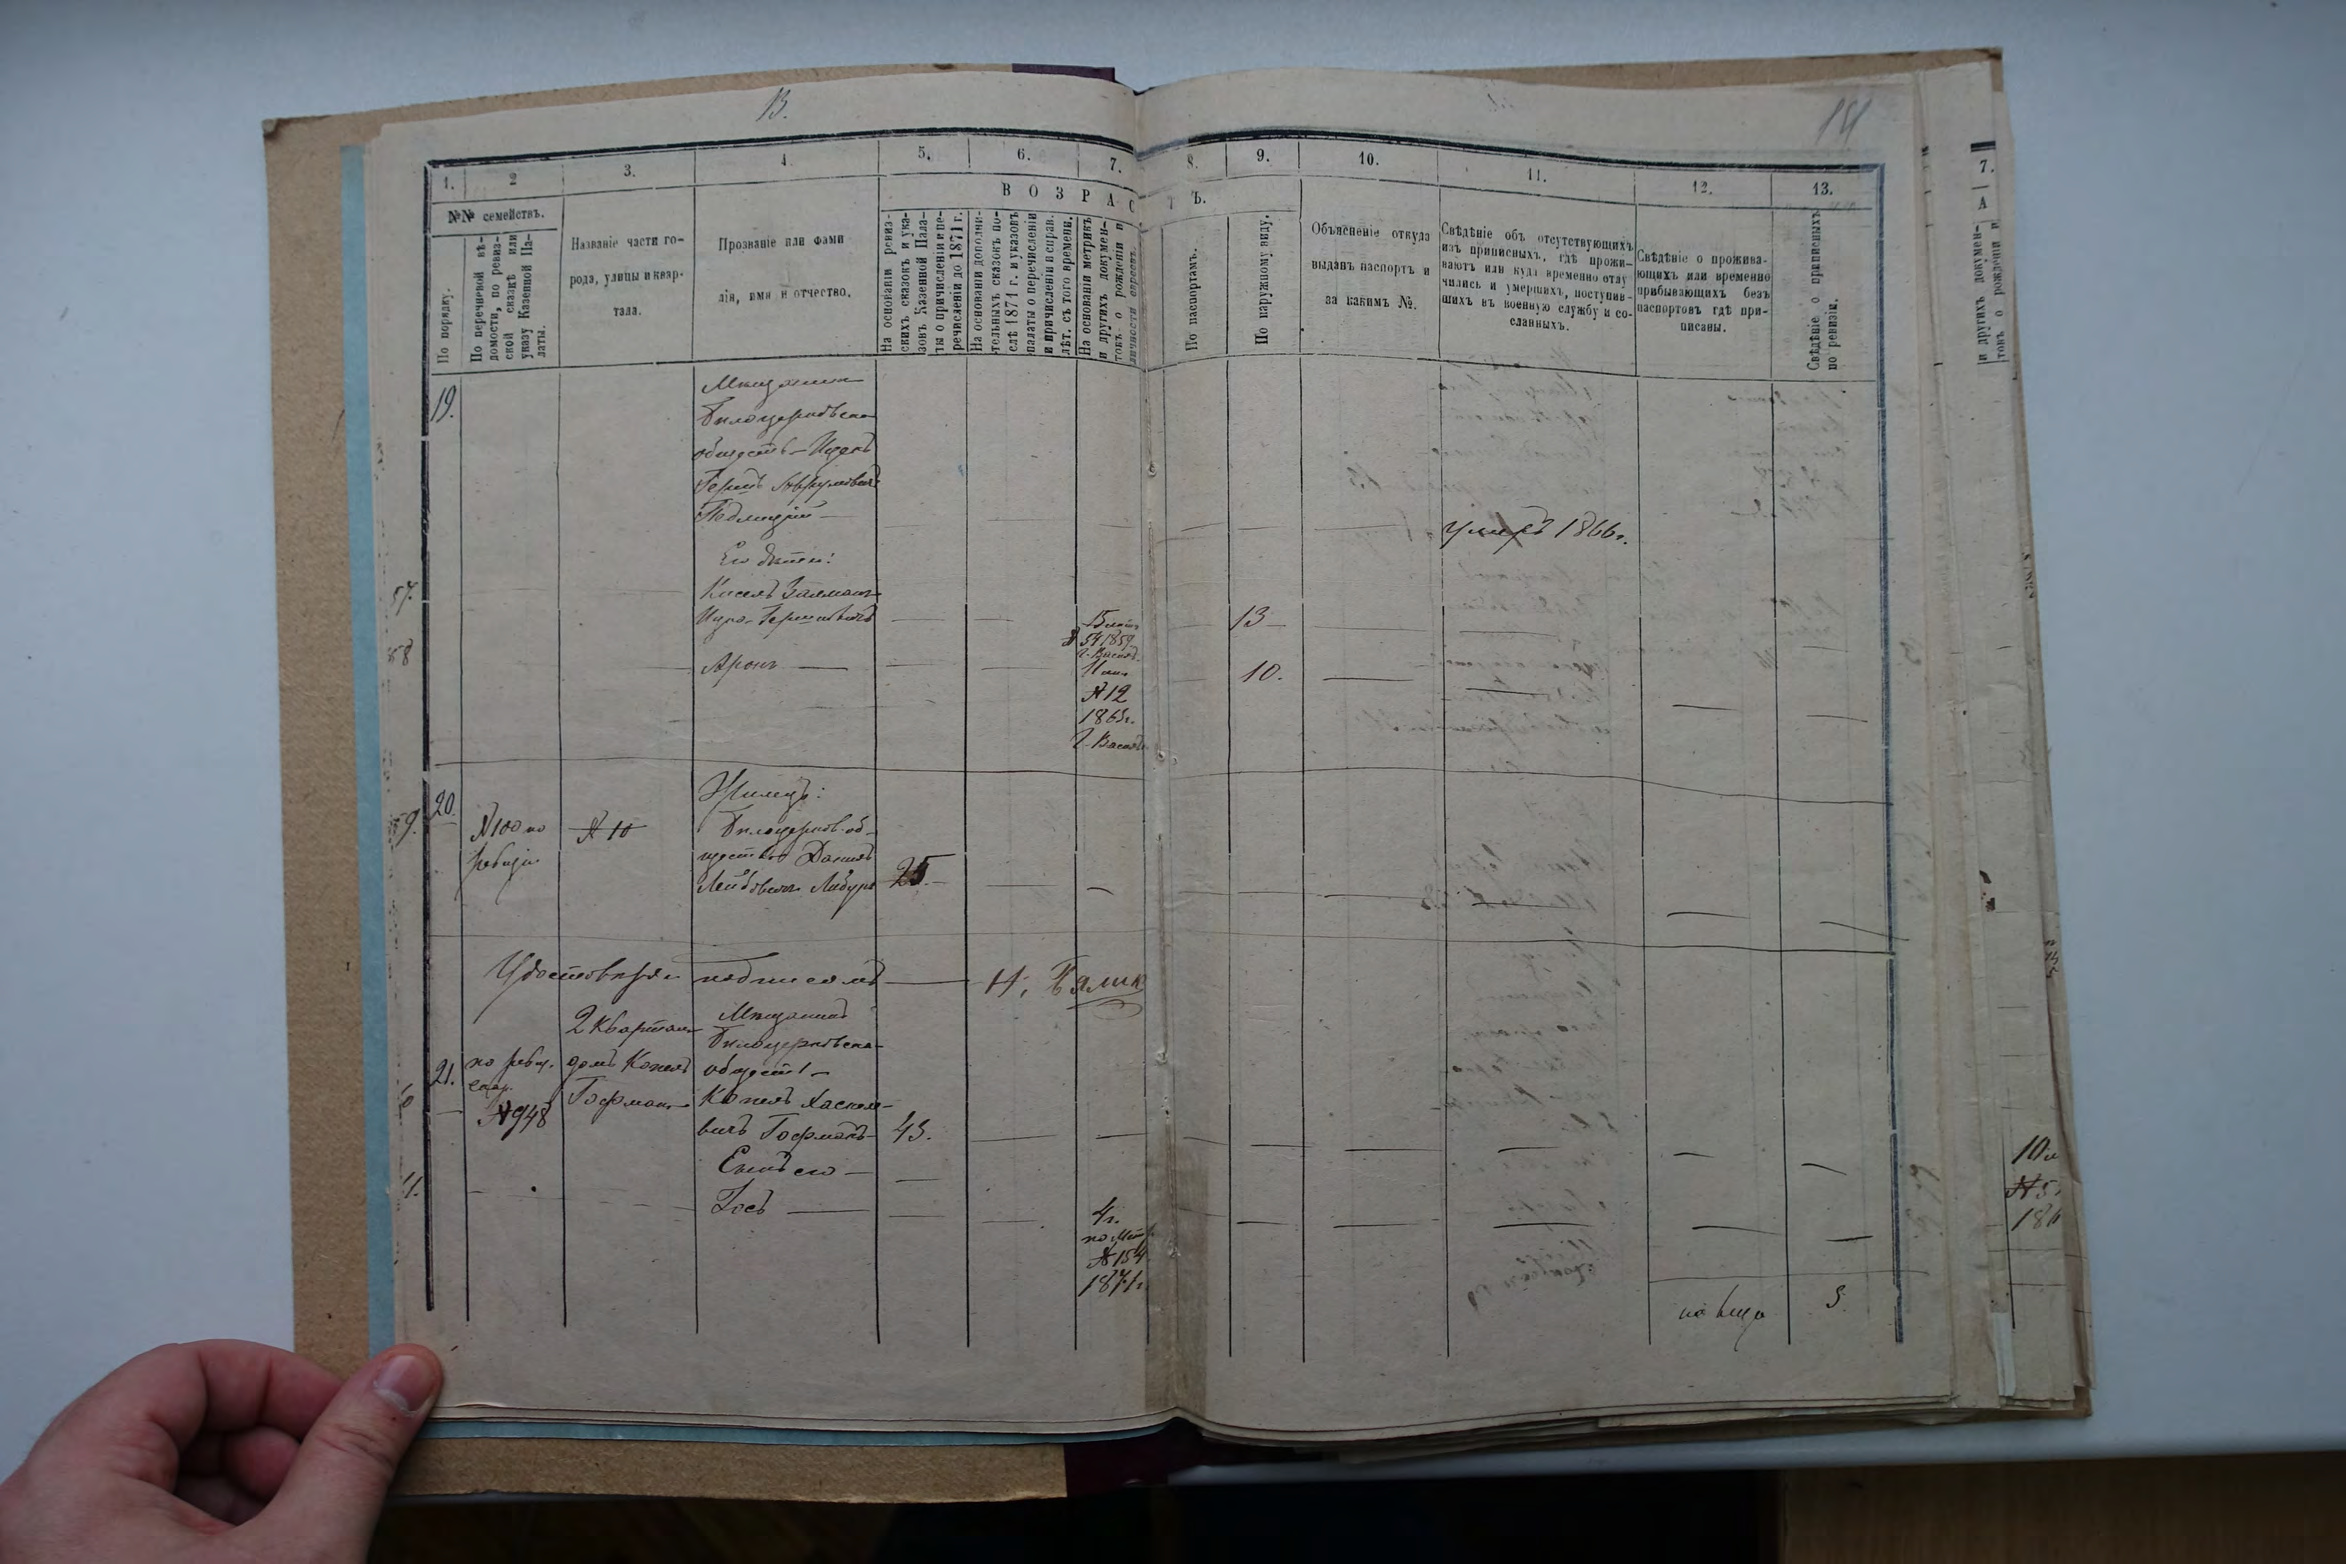 13.
1.
2
3.
4.
5.
6.
7.
8.
9.
10.
11.
12.
13.
ВОЗРАСТЪ.
№№ семействъ.
По порядку.
По перечневой вѣ-
домости, по ревиз-
ской сказкѣ или
указу Казенной Па-
латы.
Названіе части го-
рода, улицы и квар-
тала.
Прозваніе или фами
лія, имя и отчество.
На основаніи ревиз-
скихъ сказокъ и ука-
зовъ Казенной Пала-
ты о причисленіи и пе-
речисленіи до 1871 г.
На основаніи дополни-
тельныхъ сказокъ по-
слѣ 1871 г. и указовъ
палаты о перечисленіи
и причисленіи и справ.
лѣт. съ того времени.
На основаніи метрикъ
и другихъ докумен-
товъ о рожденіи и
личности евреевъ.
По паспортамъ.
По наружному виду.
Объясненіе откуда
выданъ паспортъ и
за какимъ №.
Свѣдѣніе объ отсутствующихъ
изъ приписныхъ, гдѣ прожи-
ваютъ или куда временно отлу
чились и умершихъ, поступив-
шихъ въ военную службу и со-
сланныхъ.
Свѣдѣніе о прожива-
ющихъ или временно
прибывающихъ безъ
паспортовъ гдѣ при-
писаны.
Свѣдѣніе о приписныхъ
по ревизіи.
19.
Мищанин
Билоцерковска
обществ- Ицекъ
Гершъ Аврумовичъ
умеръ 1866 г.
Его дѣти:
57.
Кисель Залман
Ицко-Гершковичъ
15 лѣт
54 1859
г. Васил.
13
58
Аронъ
11 лѣт
№ 12
1863 г.
г. Васил
10.
20.
59.
№ 100 по
ревизіи
№ 10
Билоцерков. об-
щества Даниль
Лейбович
25.
Удостовѣряю подписомъ Н. Балик
21.
по ревиз.
сказ.
№ 948
2 Квартал
домъ Копель
Гофман
Мищанинъ
Билоцерковска
обществ
Копель Хаскеле-
вичъ Гофманъ
43.
Сынъ его
Іосъ
4 г.
по Метр
№ 154
1871 г.
5.
7.
А
и другихъ докумен-
товъ о рожденіи и
10 л
№ 5
186